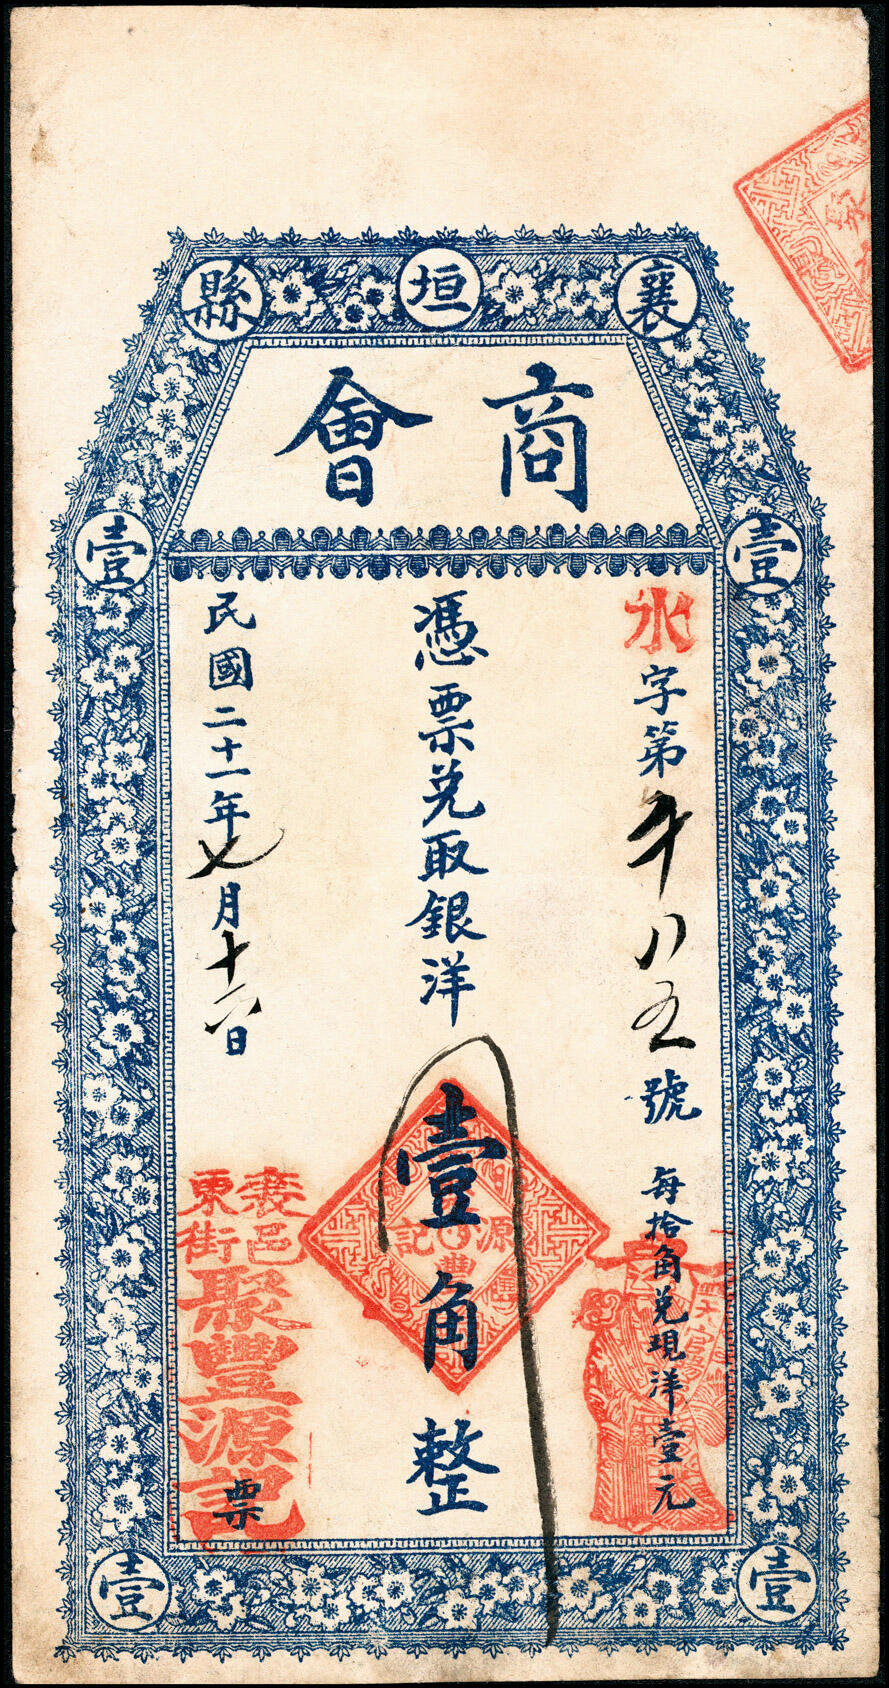 襄垣縣
商會
壹 壹
永字第年八五號
每拾角兌現洋壹元
憑票兌取銀洋
壹角整
民國二十一年七月十六日
襄邑
東街
聚豐源記
票
源豐記
天官賜
壹 壹